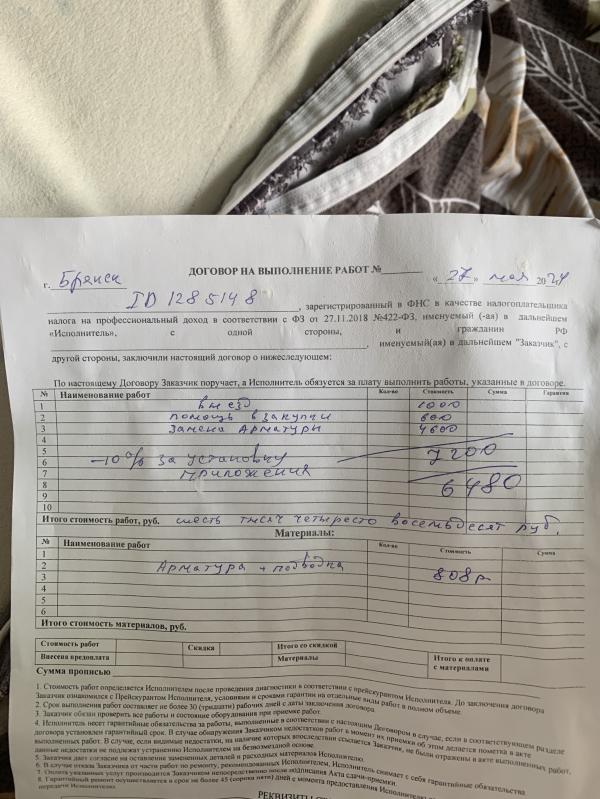 ДОГОВОР НА ВЫПОЛНЕНИЕ РАБОТ №
г. Брянск « 27 » мая 2024
ID 1285148 , зарегистрированный в ФНС в качестве налогоплательщика
налога на профессиональный доход в соответствии с ФЗ от 27.11.2018 №422-ФЗ, именуемый (-ая) в дальнейшем
«Исполнитель», с одной стороны, и гражданин РФ
, именуемый(ая) в дальнейшем "Заказчик", с
другой стороны, заключили настоящий договор о нижеследующем:
По настоящему Договору Заказчик поручает, а Исполнитель обязуется за плату выполнить работы, указанные в договоре.
№ Наименование работ Кол-во Стоимость Сумма Гарантия
1 выезд 1000
2 помощь в закупки
3 Замена Арматуры
4
5 7200
6 -10% за установку
7 Приложения
8 6480
9
10
Итого стоимость работ, руб. шесть тысяч четыресто восемьдесят руб.
Материалы:
№ Наименование работ Кол-во Стоимость Сумма
1
2 Арматура + подводка
3 808р
4
5
6
Итого стоимость материалов, руб.
Стоимость работ Скидка Итого со скидкой
Внесена предоплата Материалы Итого к оплате с материалами
Сумма прописью
1. Стоимость работ определяется Исполнителем после проведения диагностики в соответствии с прейскурантом Исполнителя. До заключения договора
Заказчик ознакомился с Прейскурантом Исполнителя, условиями и сроками гарантии на отдельные виды работ в полном объеме.
2. Срок выполнения работ составляет не более 30 (тридцати) рабочих дней с даты заключения договора.
3. Заказчик обязан проверить все работы и состояние оборудования при приемке работ.
4. Исполнитель несет гарантийные обязательства за работы, выполненные в соответствии с настоящим Договором в случае, если в соответствующем разделе
договора установлен гарантийный срок. В случае обнаружения Заказчиком недостатков работ в момент их приемки об этом делается пометка в акте
выполненных работ. В случае, если видимые недостатки, на наличие которых впоследствии ссылается Заказчик, не были отражены в акте выполненных работ,
данные недостатки не подлежат устранению Исполнителем на безвозмездной основе.
5. Заказчик дает согласие на оставление замененных деталей и расходных материалов Исполнителю.
6. В случае отказа Заказчика от части работ по ремонту, рекомендованных Исполнителем, Исполнитель снимает с себя гарантийные обязательства
7. Оплата указанных услуг производится Заказчиком непосредственно после подписания Акта сдачи-приемки.
8. Гарантийный ремонт осуществляется в срок не более 45 (сорока пяти) дней с момента предоставления
передачи Исполнителю.
РЕКВИЗИТЫ